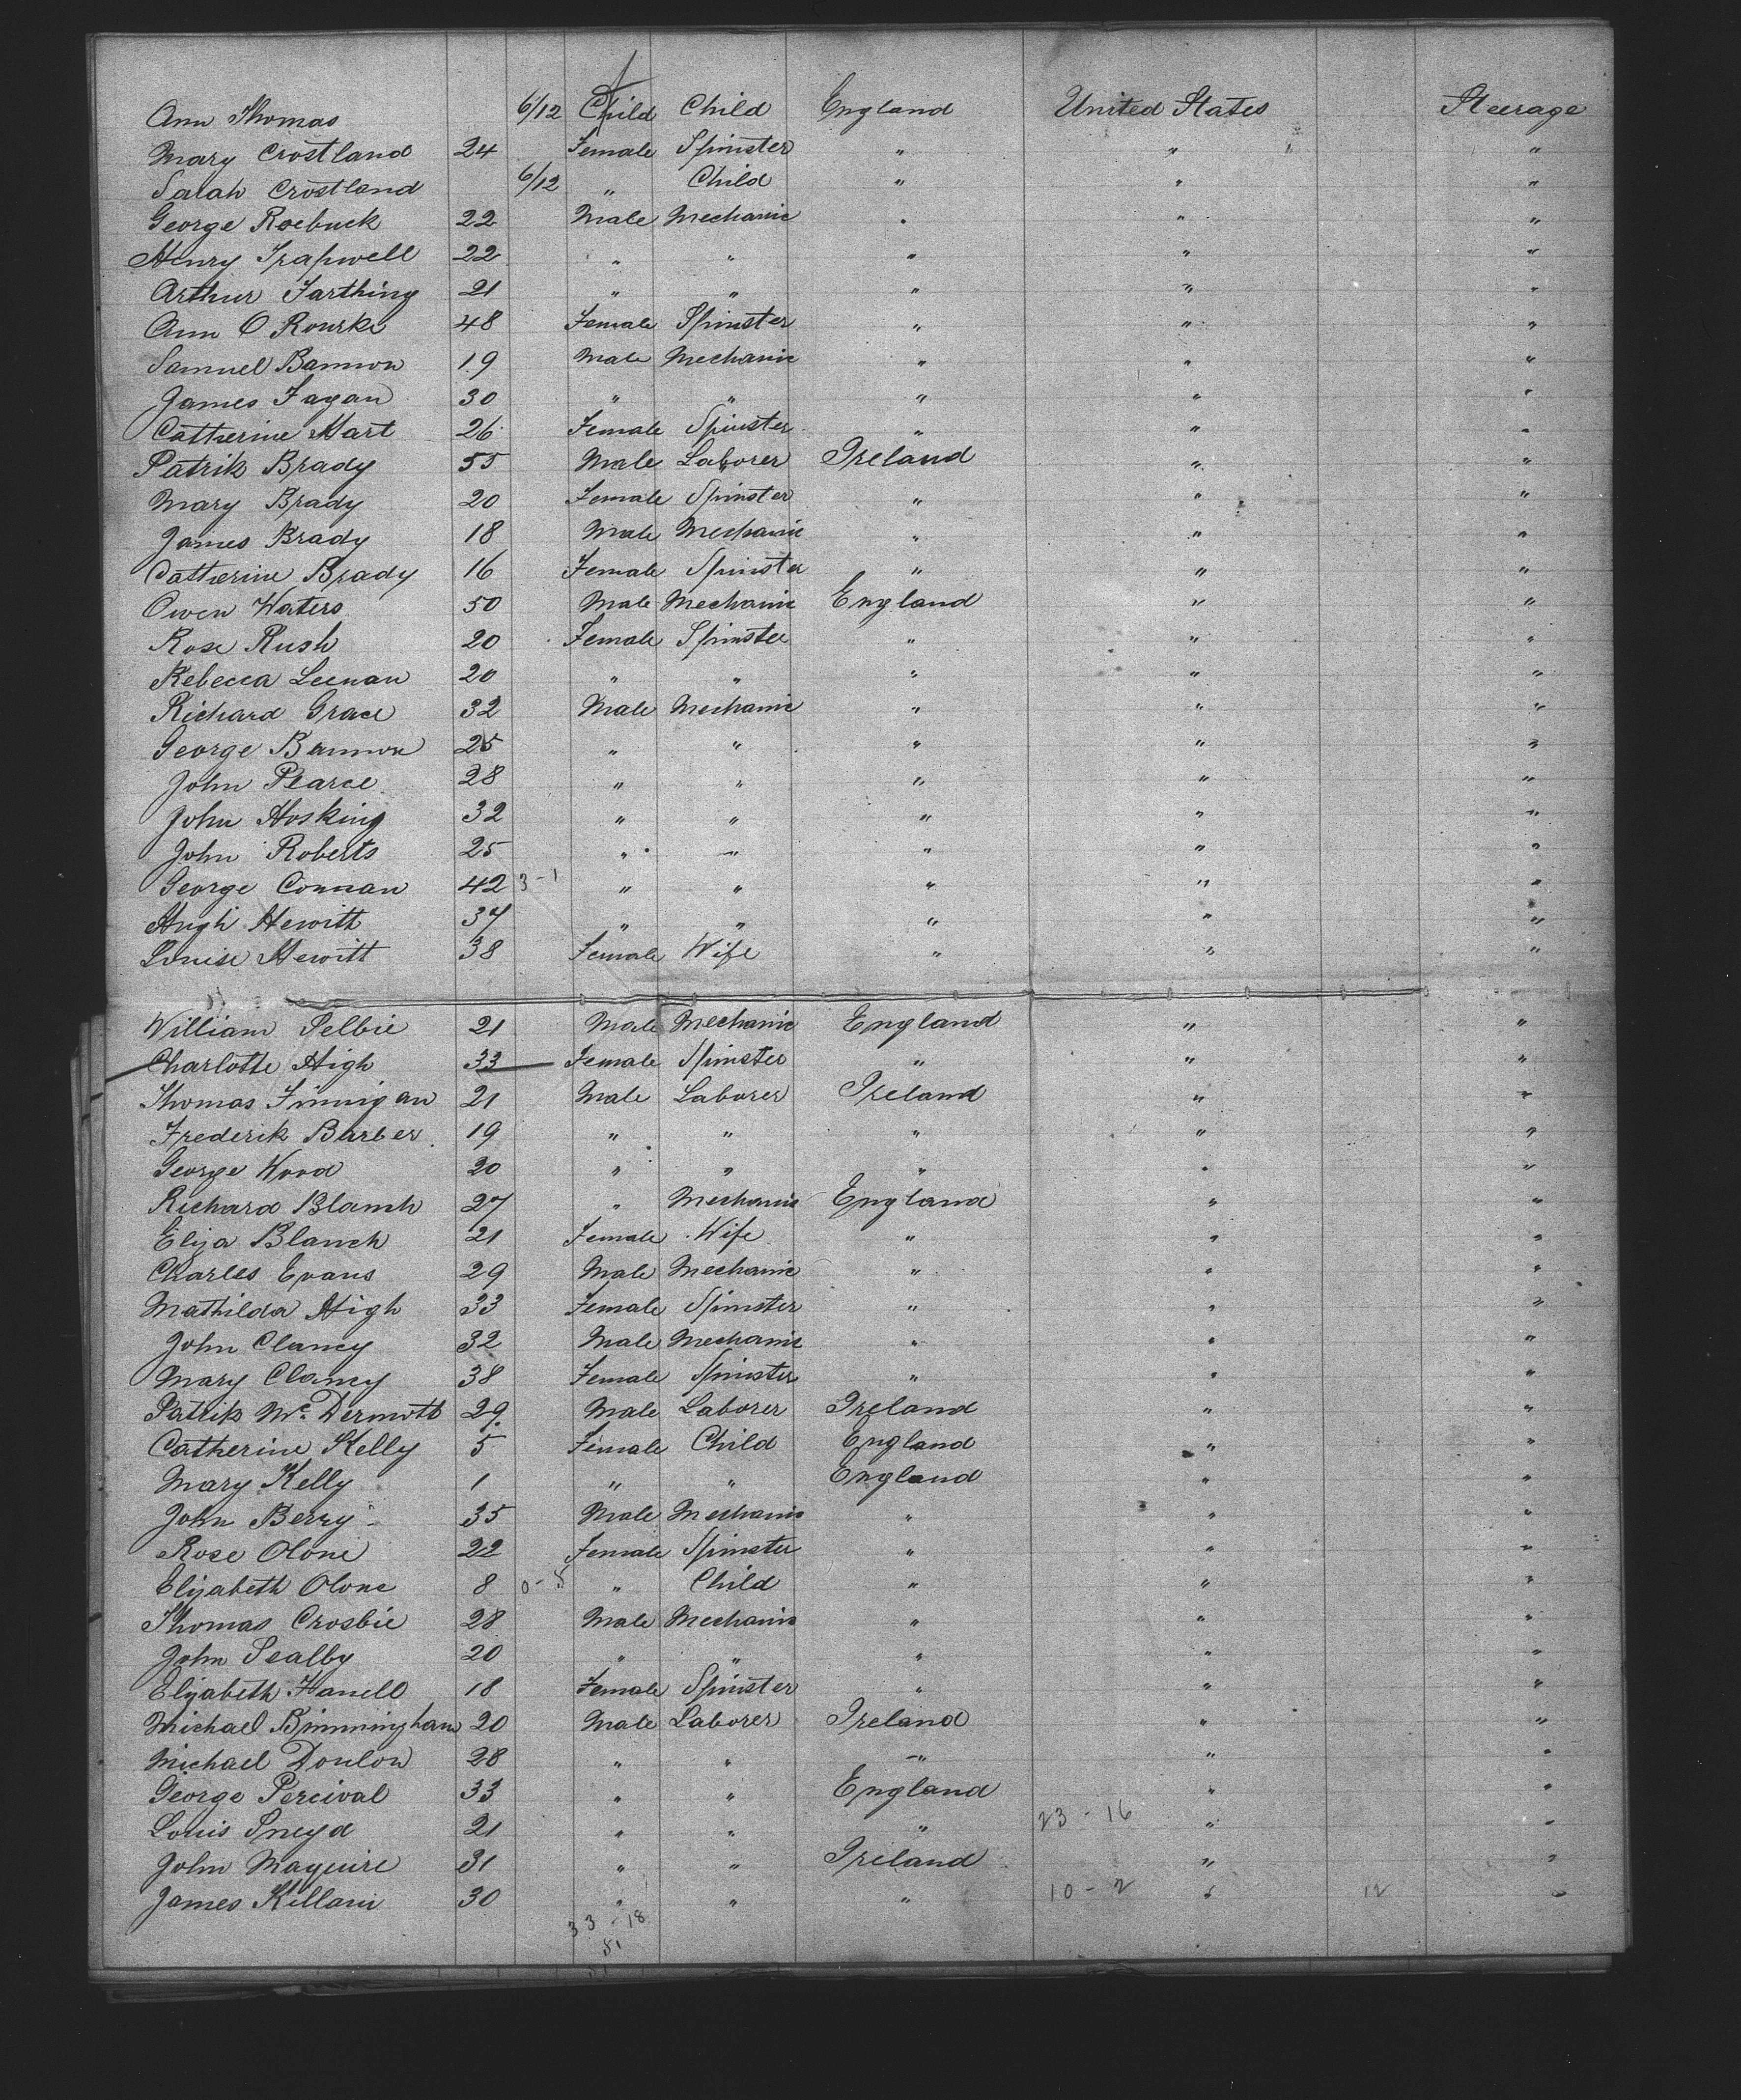 Ann Thomas 6/12 Child Child England United States Steerage
Mary Crostland 24 Female Spinster " " "
Sarah Crostland 6/12 " Child " " "
George Roebuck 22 Male Mechanic " " "
Henry 22 " " " " "
Arthur Farthing 21 " " " " "
Ann O Rourke 48 Female Spinster " " "
Samuel Bannon 19 Male Mechanic " " "
James Fagan 30 " " " " "
Catherine Hart 26 Female Spinster " " "
Patrik Brady 55 Male Laborer Ireland " "
Mary Brady 20 Female Spinster " " "
James Brady 18 Male Mechanic " " "
Catherine Brady 16 Female Spinster " " "
Owen Waters 50 Male Mechanic England " "
Rose Rush 20 Female Spinster " " "
Rebecca Leenan 20 " " " " "
Richard Grace 32 Male Mechanic " " "
George Bannon 25 " " " " "
John Pearce 28 " " " " "
John Hosking 32 " " " " "
John Roberts 25 " " " " "
George Connan 42 3-1 " " " " "
Hugh Hewitt 37 " " " " "
Louise Hewitt 38 Female Wife " " "
William Selbie 21 Male Mechanic England " "
Charlotte High 33 Female Spinster " " "
Thomas Finnigan 21 Male Laborer Ireland " "
Frederik Barber 19 " " " " "
George Wood 20 " " " " "
Richard Blanch 27 " Mechanic England " "
Eliza Blanch 21 Female Wife " " "
Charles Evans 29 Male Mechanic " " "
Mathilda High 33 Female Spinster " " "
John Clancy 32 Male Mechanic " " "
Mary Clancy 38 Female Spinster " " "
Patrik Mc Dermott 29 Male Laborer Ireland " "
Catherine Kelly 5 Female Child England " "
Mary Kelly 1 " " England " "
John Berry 35 Male Mechanic " " "
Rose Olone 22 Female Spinster " " "
Elizabeth Olone 8 0-5 " Child " " "
Thomas Crosbie 28 Male Mechanic " " "
John Sealby 20 " " " " "
Elizabeth Hanell 18 Female Spinster " " "
Michael Bimmingham 20 Male Laborer Ireland " "
Michael Donlon 28 " " " " "
George Percival 33 " " England " "
Louis Sneyd 21 " " " 23-16 " "
John Maguire 31 " " Ireland " "
James Killani 30 " " " 10-2 " 12 "
33-18
51